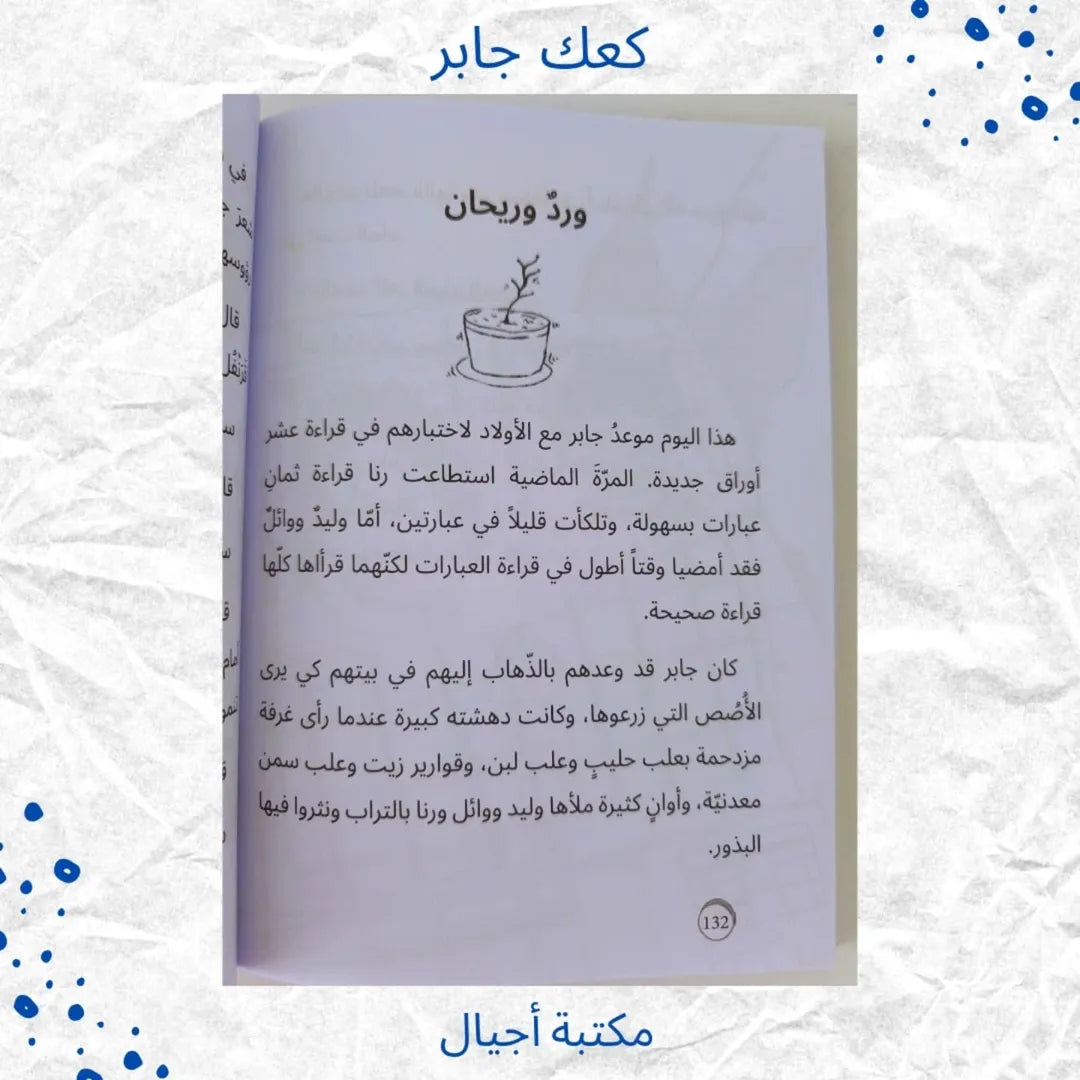 كعك جابر
وردٌ وريحان
هذا اليوم موعدُ جابر مع الأولاد لاختبارهم في قراءة عشر
أوراق جديدة. المرّةَ الماضية استطاعت رنا قراءة ثمانِ
عبارات بسهولة، وتلكأت قليلاً في عبارتين، أمّا وليدٌ ووائلٌ
فقد أمضيا وقتاً أطول في قراءة العبارات لكنّهما قرأاها كلّها
قراءة صحيحة.
كان جابر قد وعدهم بالذّهاب إليهم في بيتهم كي يرى
الأُصُص التي زرعوها، وكانت دهشته كبيرة عندما رأى غرفة
مزدحمة بعلب حليبٍ وعلب لبن، وقوارير زيت وعلب سمن
معدنيّة، وأوانٍ كثيرة ملأها وليد ووائل ورنا بالتراب ونثروا فيها
البذور.
132
مكتبة أجيال